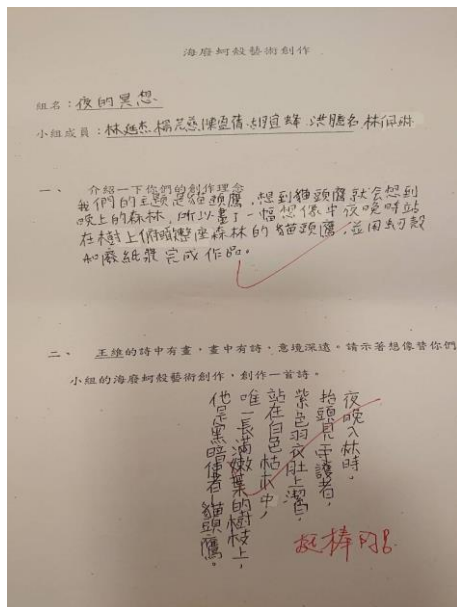 海廢蚵殼藝術創作
組名：夜的冥想
小組成員：林延杰 楊芯慈 陳盈蒨 胡宜蜂 洪聰名 林佩琳
一、 介紹一下你們的創作理念
我們的主題是貓頭鷹，想到貓頭鷹就会想到
晚上的森林，所以畫了一幅想像中夜晚時站
在樹上俯瞰整座森林的貓頭鷹，並用蚵殼
和廢紙漿完成作品。
二、 王維的詩中有畫，畫中有詩、意境深遠。請示著想像替你們
小組的海廢蚵殼藝術創作，創作一首詩。
夜晚入林時，
抬頭見守護者，
紫色羽衣肚上潔白，
站在白色枯木中，
唯一長滿嫩葉的樹枝上，
他是黑暗使者-貓頭鷹。
挺棒的!